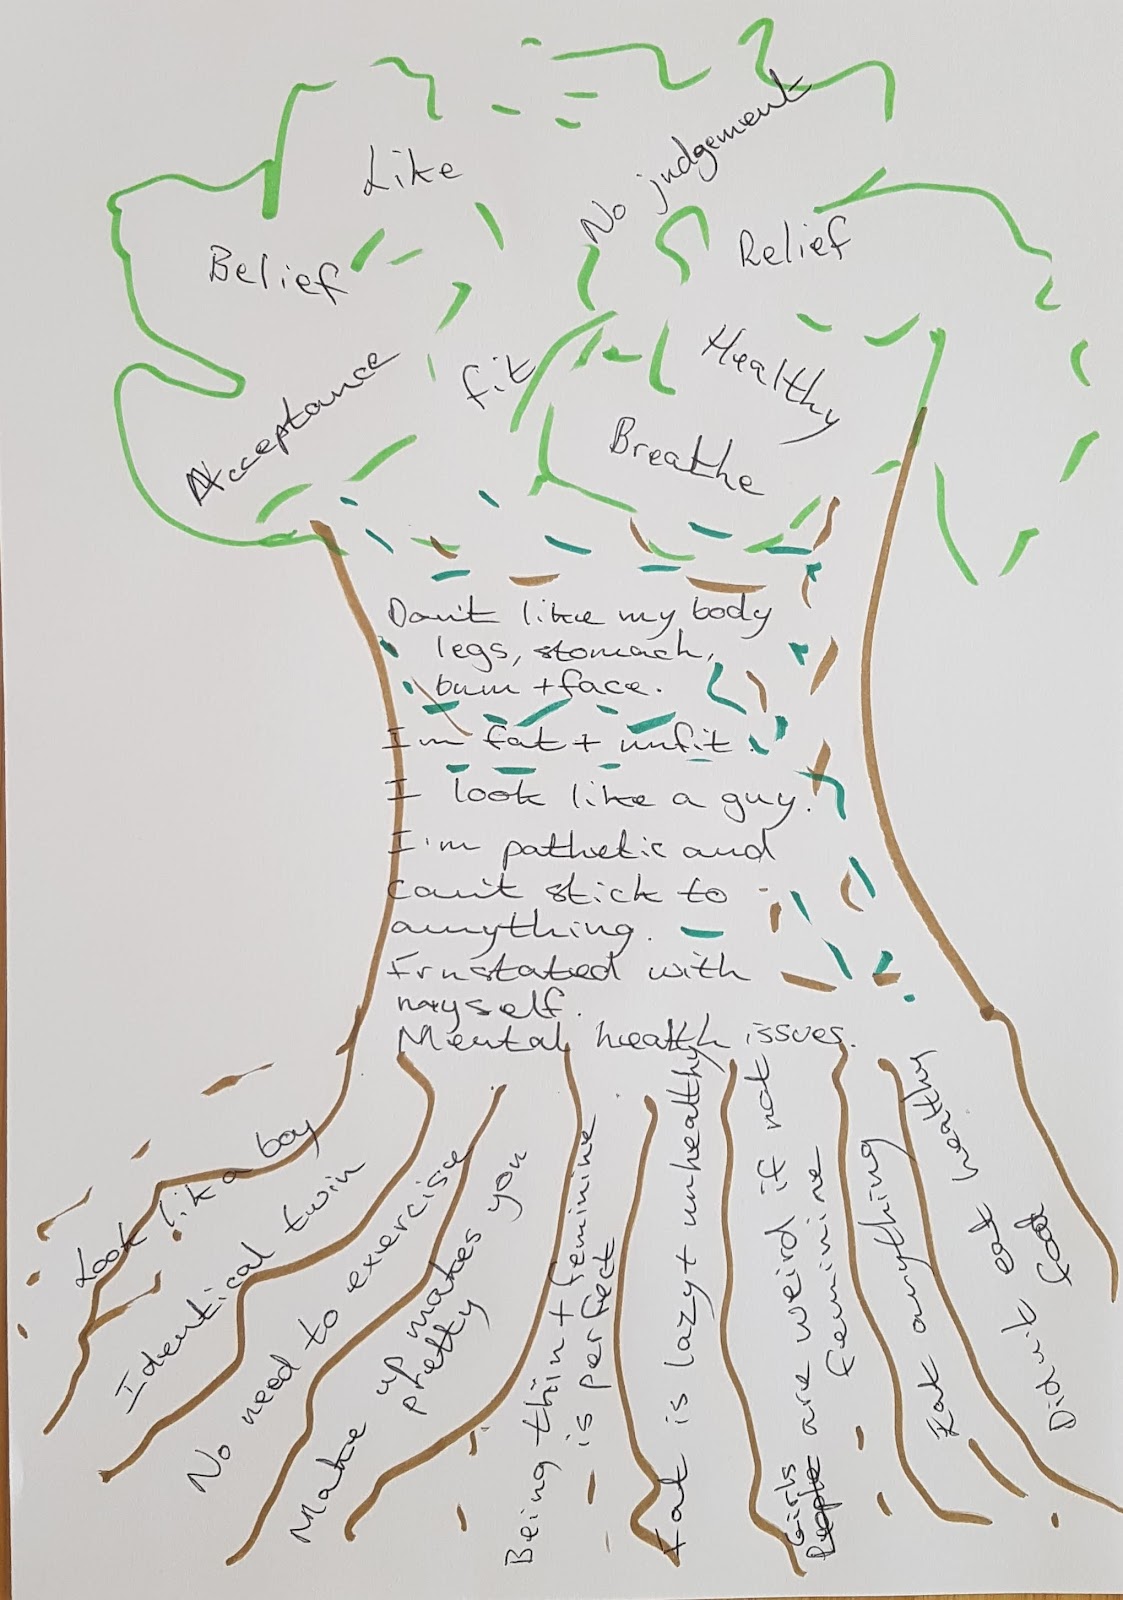 Like
No judgement
Belief
Relief
Acceptance
fit
Healthy
Breathe
Don't like my body
legs, stomach,
bum + face.
I'm fat + unfit.
I look like a guy.
I'm pathetic and
can't stick to
anything.
Frustated with
myself.
Mental health issues.
Look like a boy
Identical twin
No need to exercise
Make up makes you
pretty
Being thin + feminine
is perfect
Fat is lazy + unhealthy
Girls
People are weird if not
feminine
Eat anything
Didn't eat healthy
food